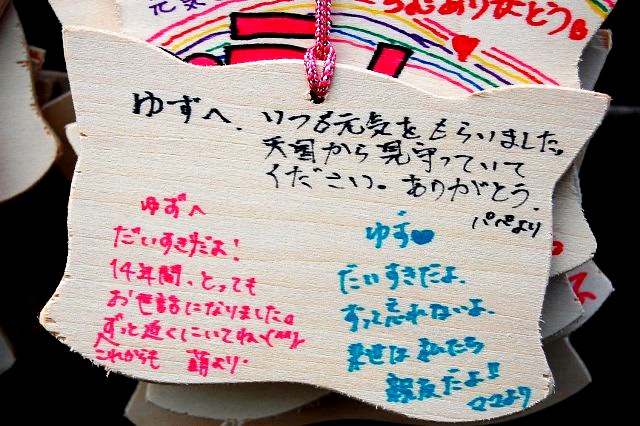 元気
ありがとう。
ゆずへ、いつも元気をもらいました。
天国から見守っていて
ください。ありがとう。
パパより
ゆずへ
だいすきだよ！
14年間、とっても
お世話になりました。
ずっと近くにいてね(^^)
これからも 萌より
ゆず♥
だいすきだよ。
ずっと忘れないよ。
来世は私たち
親友だよ!!
ママより